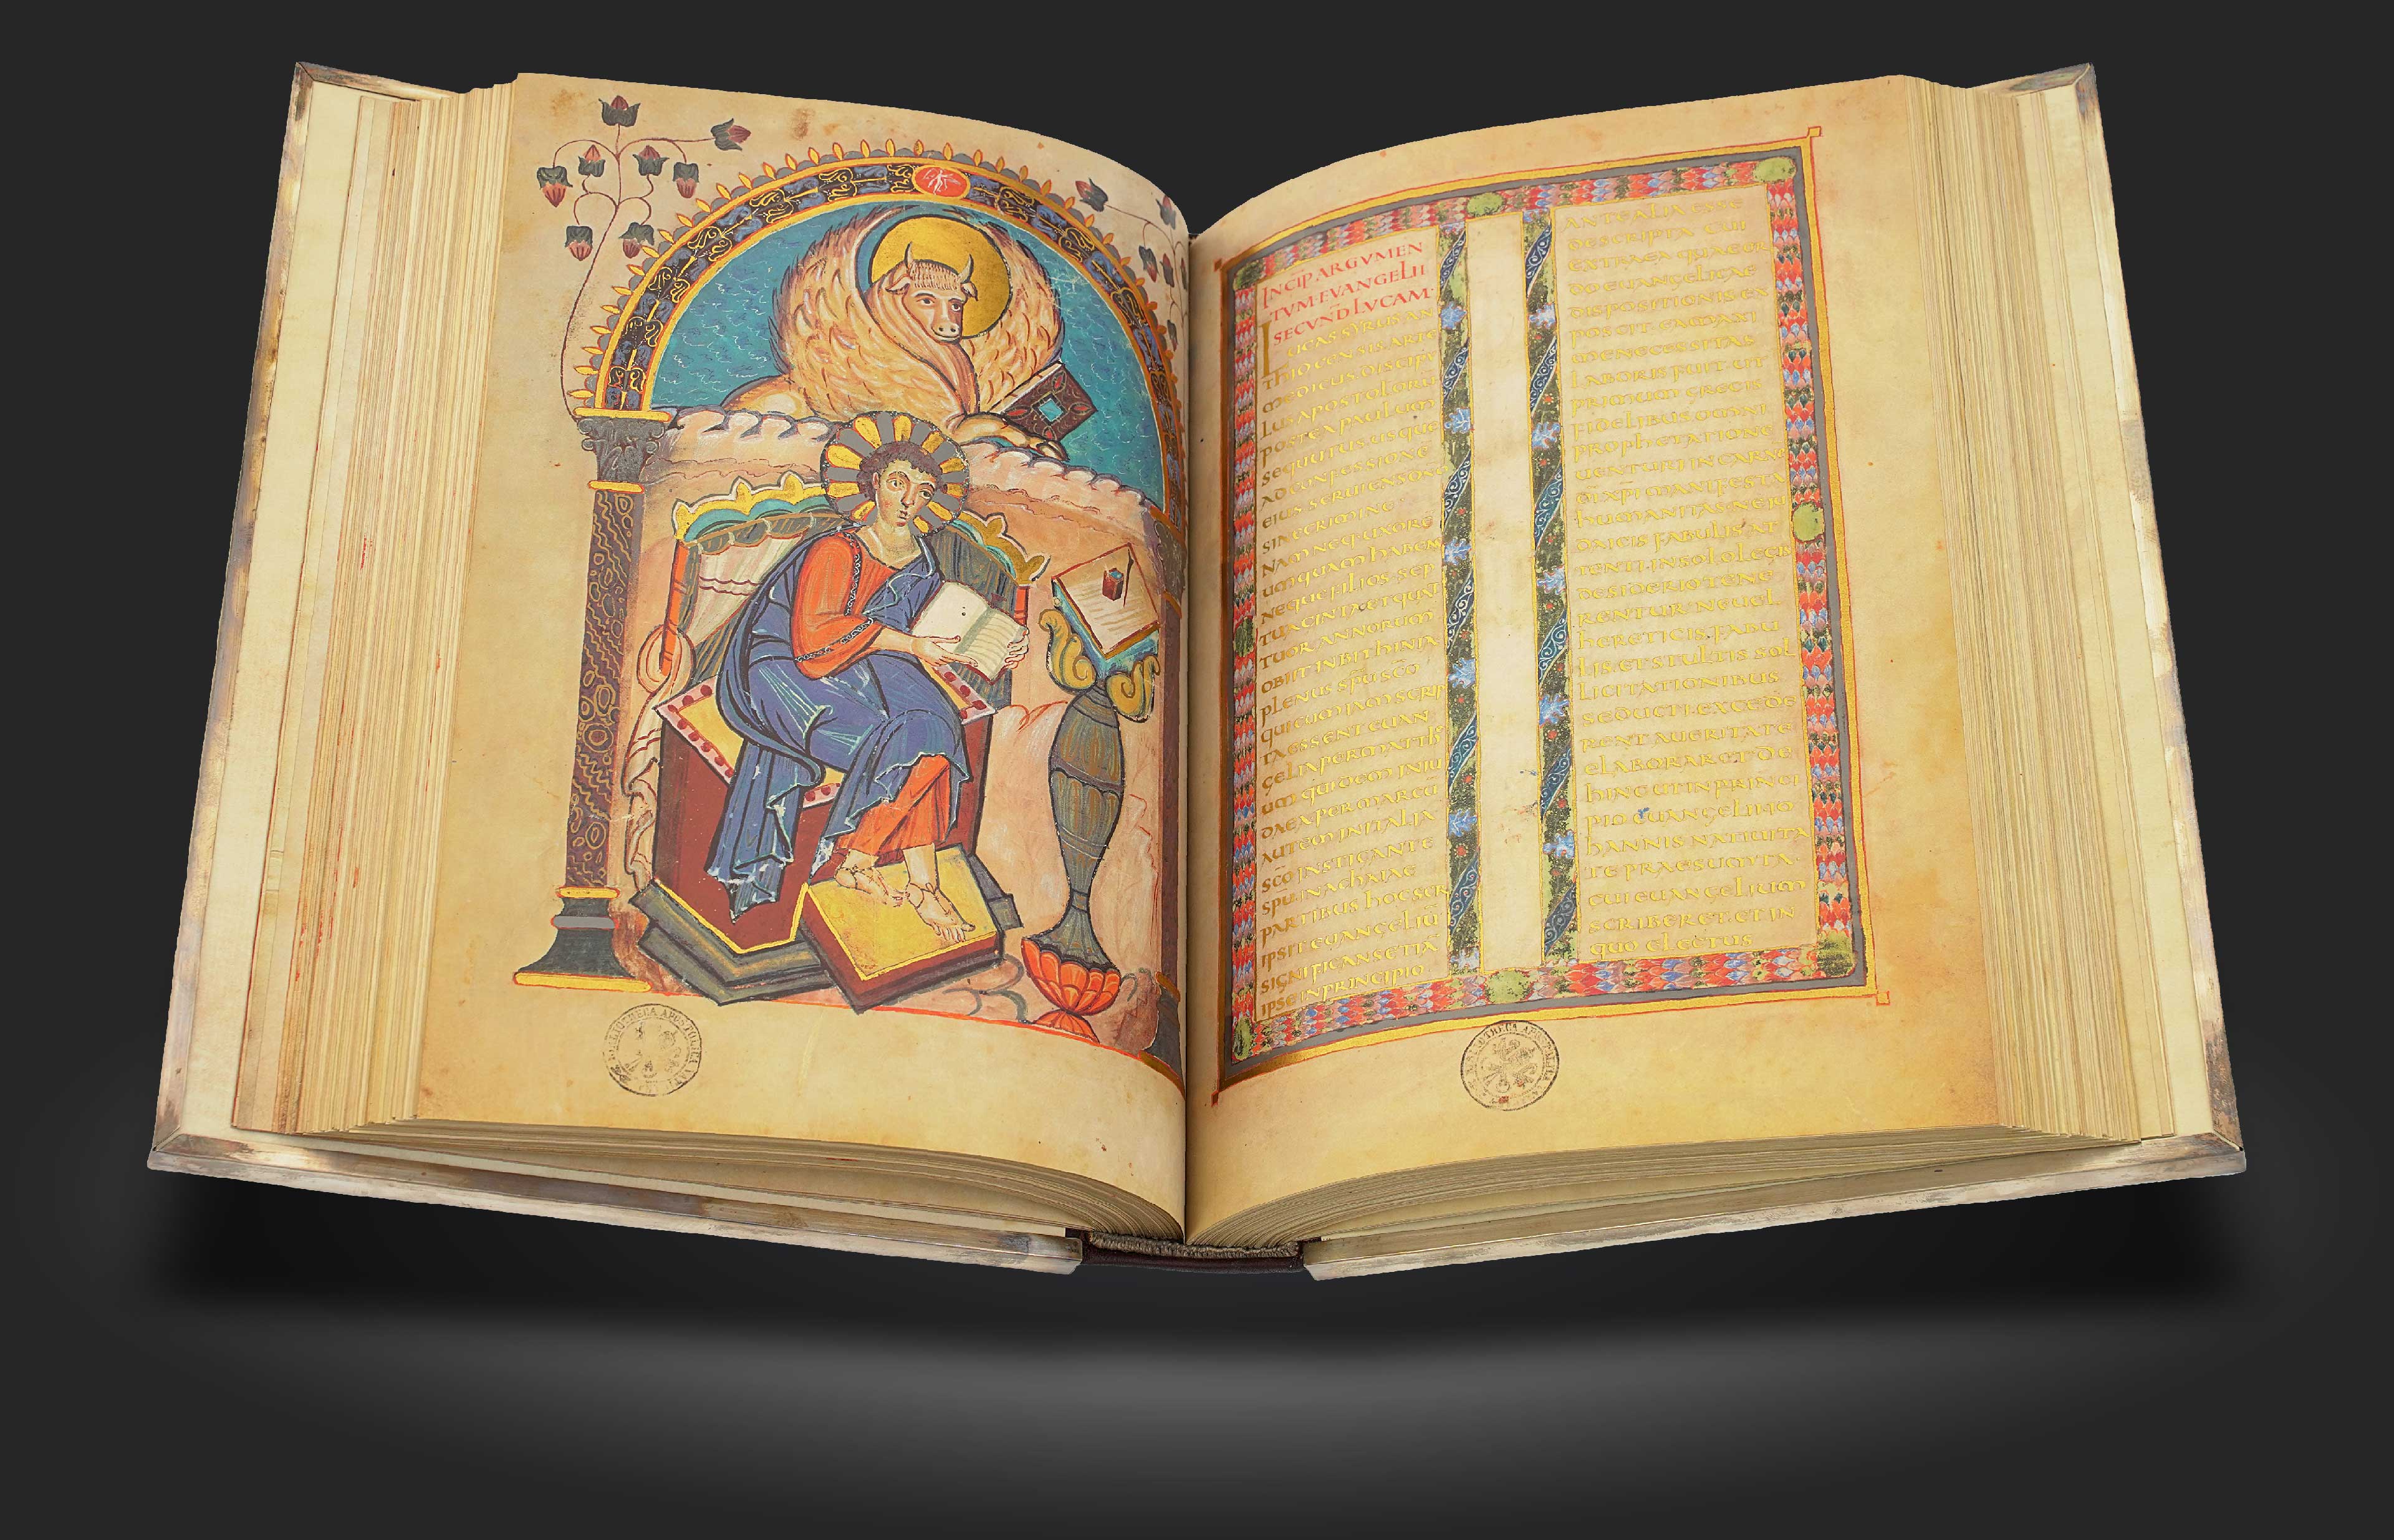 INCIP̄ ARGVMEN
TVM·EVANGELII
SECVND̄ LVCAM·
LUCAS SYRUS AN
THIOCENSIS ARTE
MEDICUS DISCIPV
LUS APOSTOLORŪ
POSTEA PAULUM
SEQUUTUS USQUE
AD CONFESSIONĒ
EIUS SERUIENS DN̄O
SINE CRIMINE
NAM NEQ· UXORĒ
UMQUAM HABENS
NEQUE FILIOS· SEP
TUACINTA ET QUAT
TUOR ANNORUM
OBIIT IN BITHINIA·
PLENUS SPŪ SC̄O
QUI CUM IAM SCRIP
TA ESSENT EUAN
GELIA PER MATTH
UM QUIDEM IN IU
DAEA PER MARCŪ
AUTEM IN ITALIA
SC̄O INSTIGANTE
SPŪ IN ACHAIAE
PARTIBUS HOC SCR
IPSIT EUANGELIŪ
SIGNIFICANS ETIĀ
IPSE IN PRINCIPIO
ANTE ALIA ESSE
DESCRIPTA CUI
EXTRA EA QUAE OR
DO EUANGELICAE
DISPOSITIONIS EX
POSCIT· EA MAXI
ME NECESSITAS
LABORIS FUIT· UT
PRIMUM GRECIS
FIDELIBUS OMNI
PROPHETATIONE
UENTURI IN CARNĒ
DĪ XPĪ MANIFESTA
HUMANITAS· NE IU
DAICIS FABULIS AT
TENTI· IN SOLO LEGIS
DESIDERIO TENE
RENTUR· NE UEL
HERETICIS FABU
LIS· ET STULTIS SOL
LICITATIONIBUS
SEDUCTI· EXCEDE
RENT A UERITATE
ELABORARET· DE
HINC UT IN PRINCI
PIO EUANGELII IO
HANNIS NATIUITA
TE PRAESUMTA·
CUI EUANGELIUM
SCRIBERET· ET IN
QUO ELECTUS